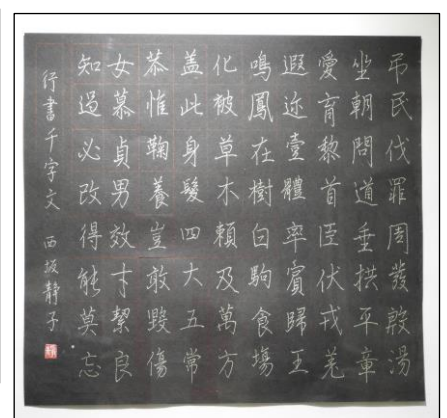 弔民伐罪周發殷湯
坐朝問道垂拱平章
愛育黎首臣伏戎羌
遐迩壹體率賓歸王
鳴鳳在樹白駒食場
化被草木賴及萬方
盖此身髮四大五常
恭惟鞠養豈敢毀傷
女慕貞男效才絜良
知過必改得能莫忘
行書千字文 西坂靜子